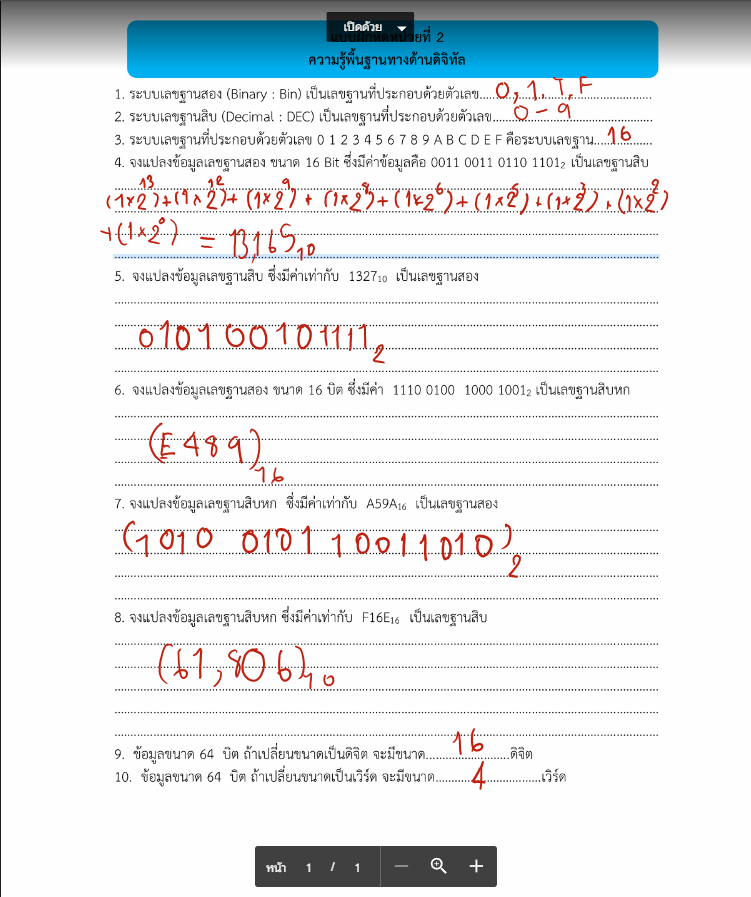 เปิดด้วย
แบบฝึกหัดหน่วยที่ 2
ความรู้พื้นฐานทางด้านดิจิทัล
1. ระบบเลขฐานสอง (Binary : Bin) เป็นเลขฐานที่ประกอบด้วยตัวเลข....0, 1. T, F
2. ระบบเลขฐานสิบ (Decimal : DEC) เป็นเลขฐานที่ประกอบด้วยตัวเลข....0 - 9
3. ระบบเลขฐานที่ประกอบด้วยตัวเลข 0 1 2 3 4 5 6 7 8 9 A B C D E F คือระบบเลขฐาน....16
4. จงแปลงข้อมูลเลขฐานสอง ขนาด 16 Bit ซึ่งมีค่าข้อมูลคือ 0011 0011 0110 1101₂ เป็นเลขฐานสิบ
(1×2¹³)+(1×2¹²)+(1×2⁹)+(1×2⁸)+(1×2⁶)+(1×2⁵)+(1×2³)+(1×2²)
+(1×2⁰) = 13,165₁₀
5. จงแปลงข้อมูลเลขฐานสิบ ซึ่งมีค่าเท่ากับ 1327₁₀ เป็นเลขฐานสอง
010100101111₂
6. จงแปลงข้อมูลเลขฐานสอง ขนาด 16 บิต ซึ่งมีค่า 1110 0100 1000 1001₂ เป็นเลขฐานสิบหก
(E489)₁₆
7. จงแปลงข้อมูลเลขฐานสิบหก ซึ่งมีค่าเท่ากับ A59A₁₆ เป็นเลขฐานสอง
(1010 0101 10011010)₂
8. จงแปลงข้อมูลเลขฐานสิบหก ซึ่งมีค่าเท่ากับ F16E₁₆ เป็นเลขฐานสิบ
(61,806)₁₀
9. ข้อมูลขนาด 64 บิต ถ้าเปลี่ยนขนาดเป็นดิจิต จะมีขนาด....16....ดิจิต
10. ข้อมูลขนาด 64 บิต ถ้าเปลี่ยนขนาดเป็นเวิร์ด จะมีขนาด....4....เวิร์ด
หน้า 1 / 1